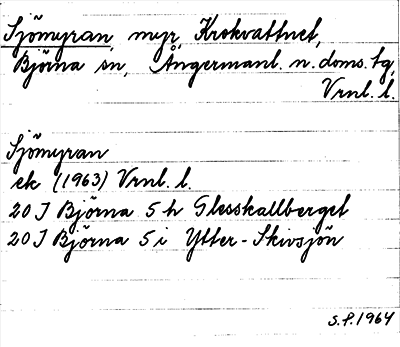 Sjömyran, myr, Krokvattnet,
Björna sn, Ångermanl. n. doms. tg,
Vrnl. l.
Sjömyran
ek (1963) Vrnl. l.
20 J Björna 5 h Glesskallberget
20 J Björna 5 i Ytter-Skivsjön
S.P. 1964